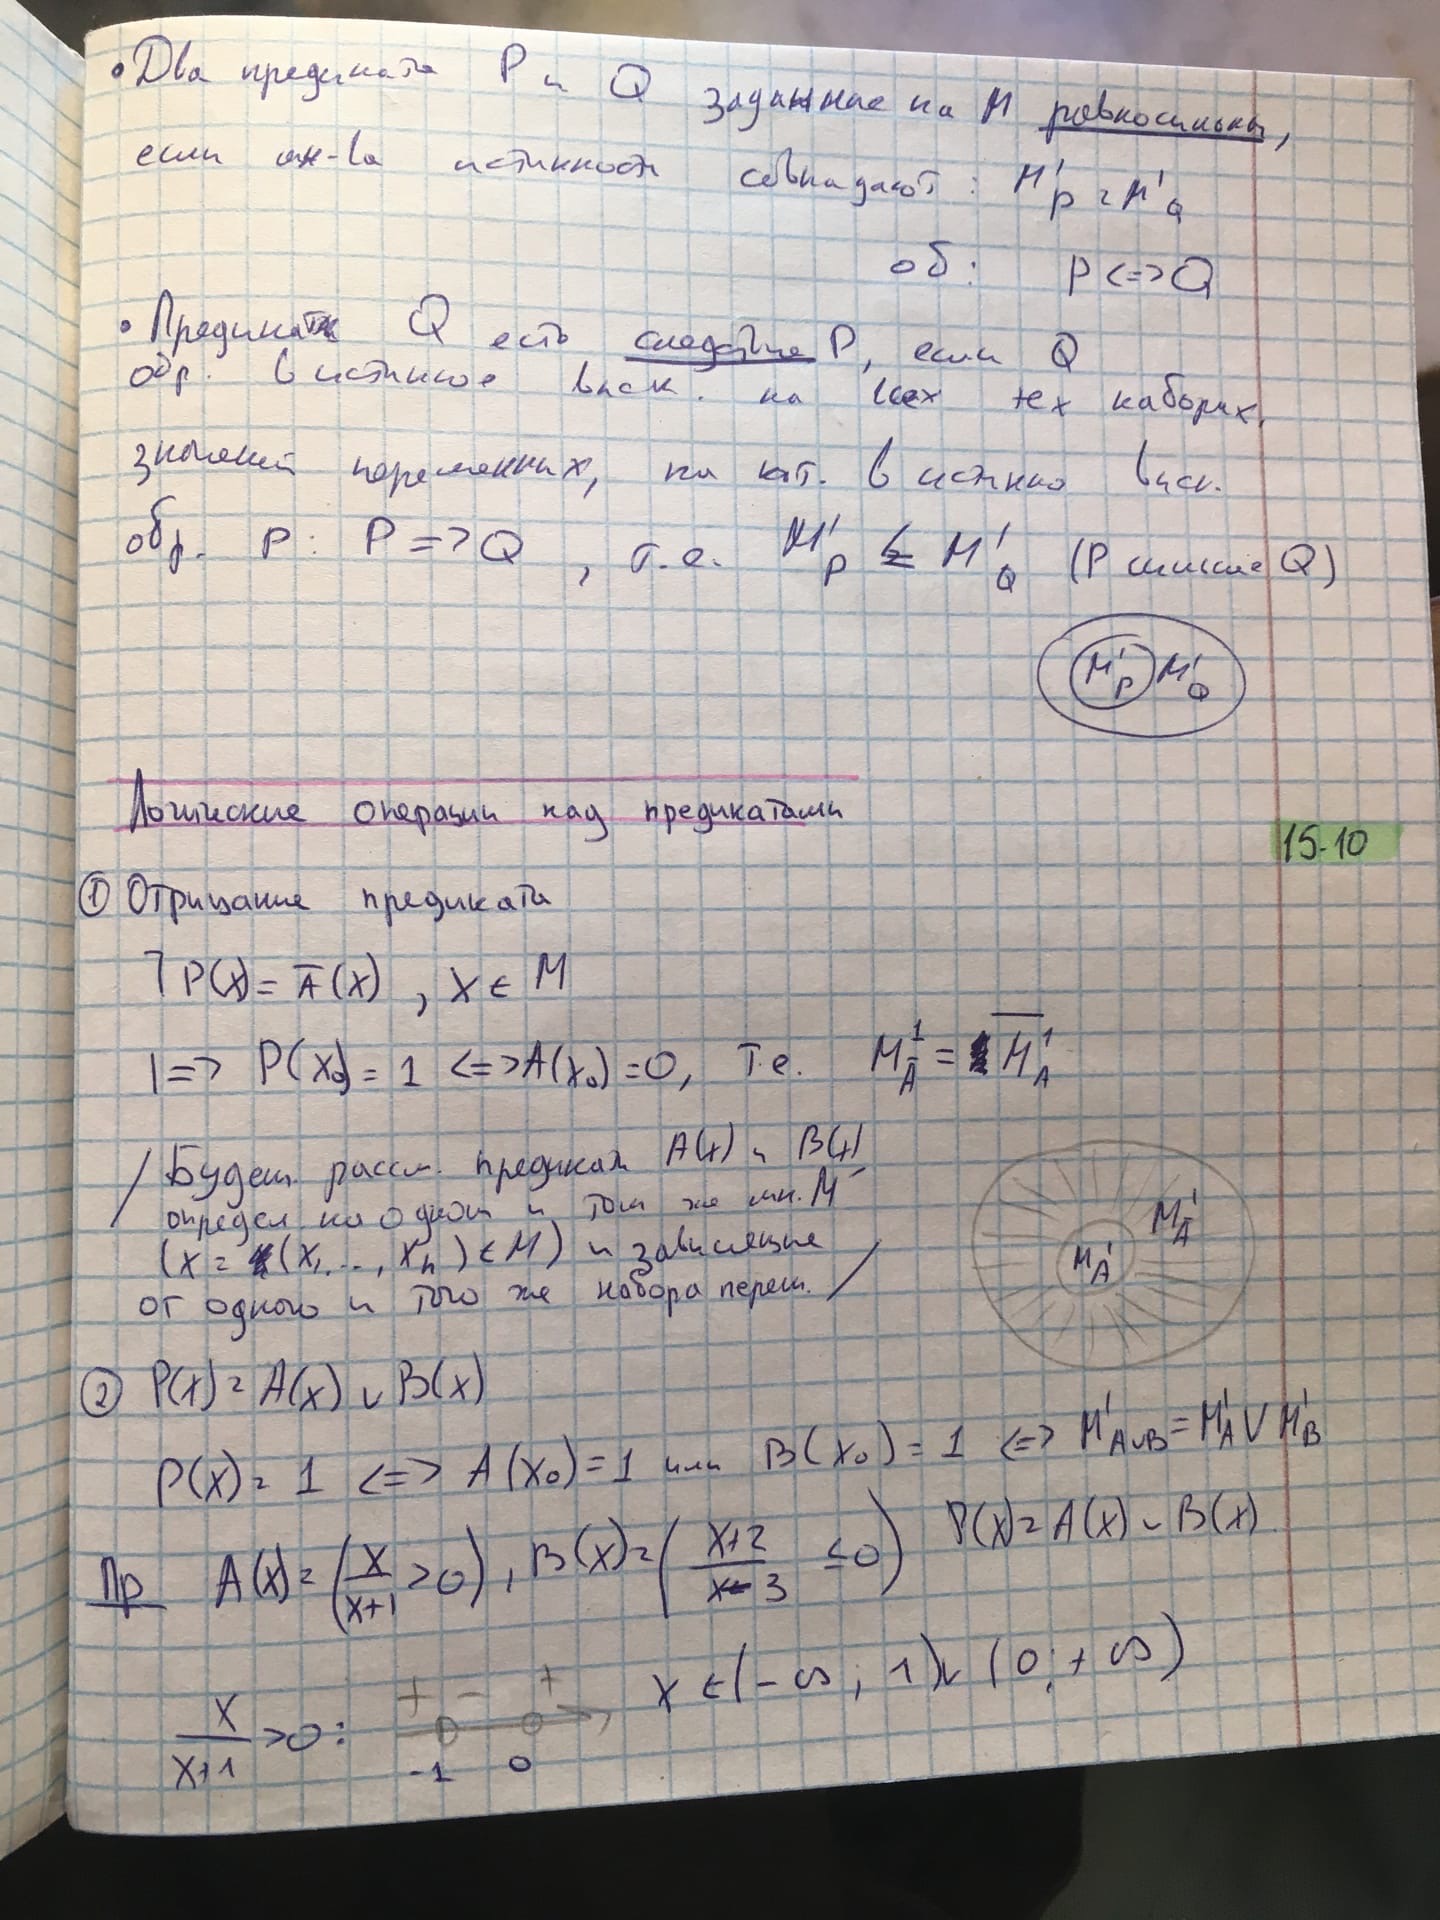 • Два предиката P и Q заданные на M равносильны,
если мн-ва истинности совпадают: M¹_P = M¹_Q
об: P <=> Q
• Предикат Q есть следствие P, если Q
обр. в истинное выск. на всех тех наборах
значений переменных, на кот. в истинно выск.
обр. P: P => Q, т.е. M¹_P ⊆ M¹_Q (P сильнее Q)
M¹_P M¹_Q
Логические операции над предикатами
15.10
① Отрицание предиката
⌉ P(x) = A̅(x), x ∈ M
|=> P(x₀) = 1 <=> A(x₀) = 0, т.е. M¹_A̅ = \overline{M¹_A}
/ Будем рассм. предикаты A(x) и B(x),
определ на одном и том же мн. M
(x = (x₁, ..., xₙ) ∈ M) и зависящие
от одного и того же набора перем. /
M¹_A M¹_A̅
② P(x) = A(x) ∨ B(x)
P(x) = 1 <=> A(x₀) = 1 или B(x₀) = 1 <=> M¹_A∪B = M¹_A ∪ M¹_B
Пр A(x) = (x/(x+1) > 0), B(x) = ((x+2)/(x-3) ≤ 0) P(x) = A(x) ∨ B(x).
x/(x+1) > 0: + - + x ∈ (-∞; 1) ∪ (0; +∞)
-1 0